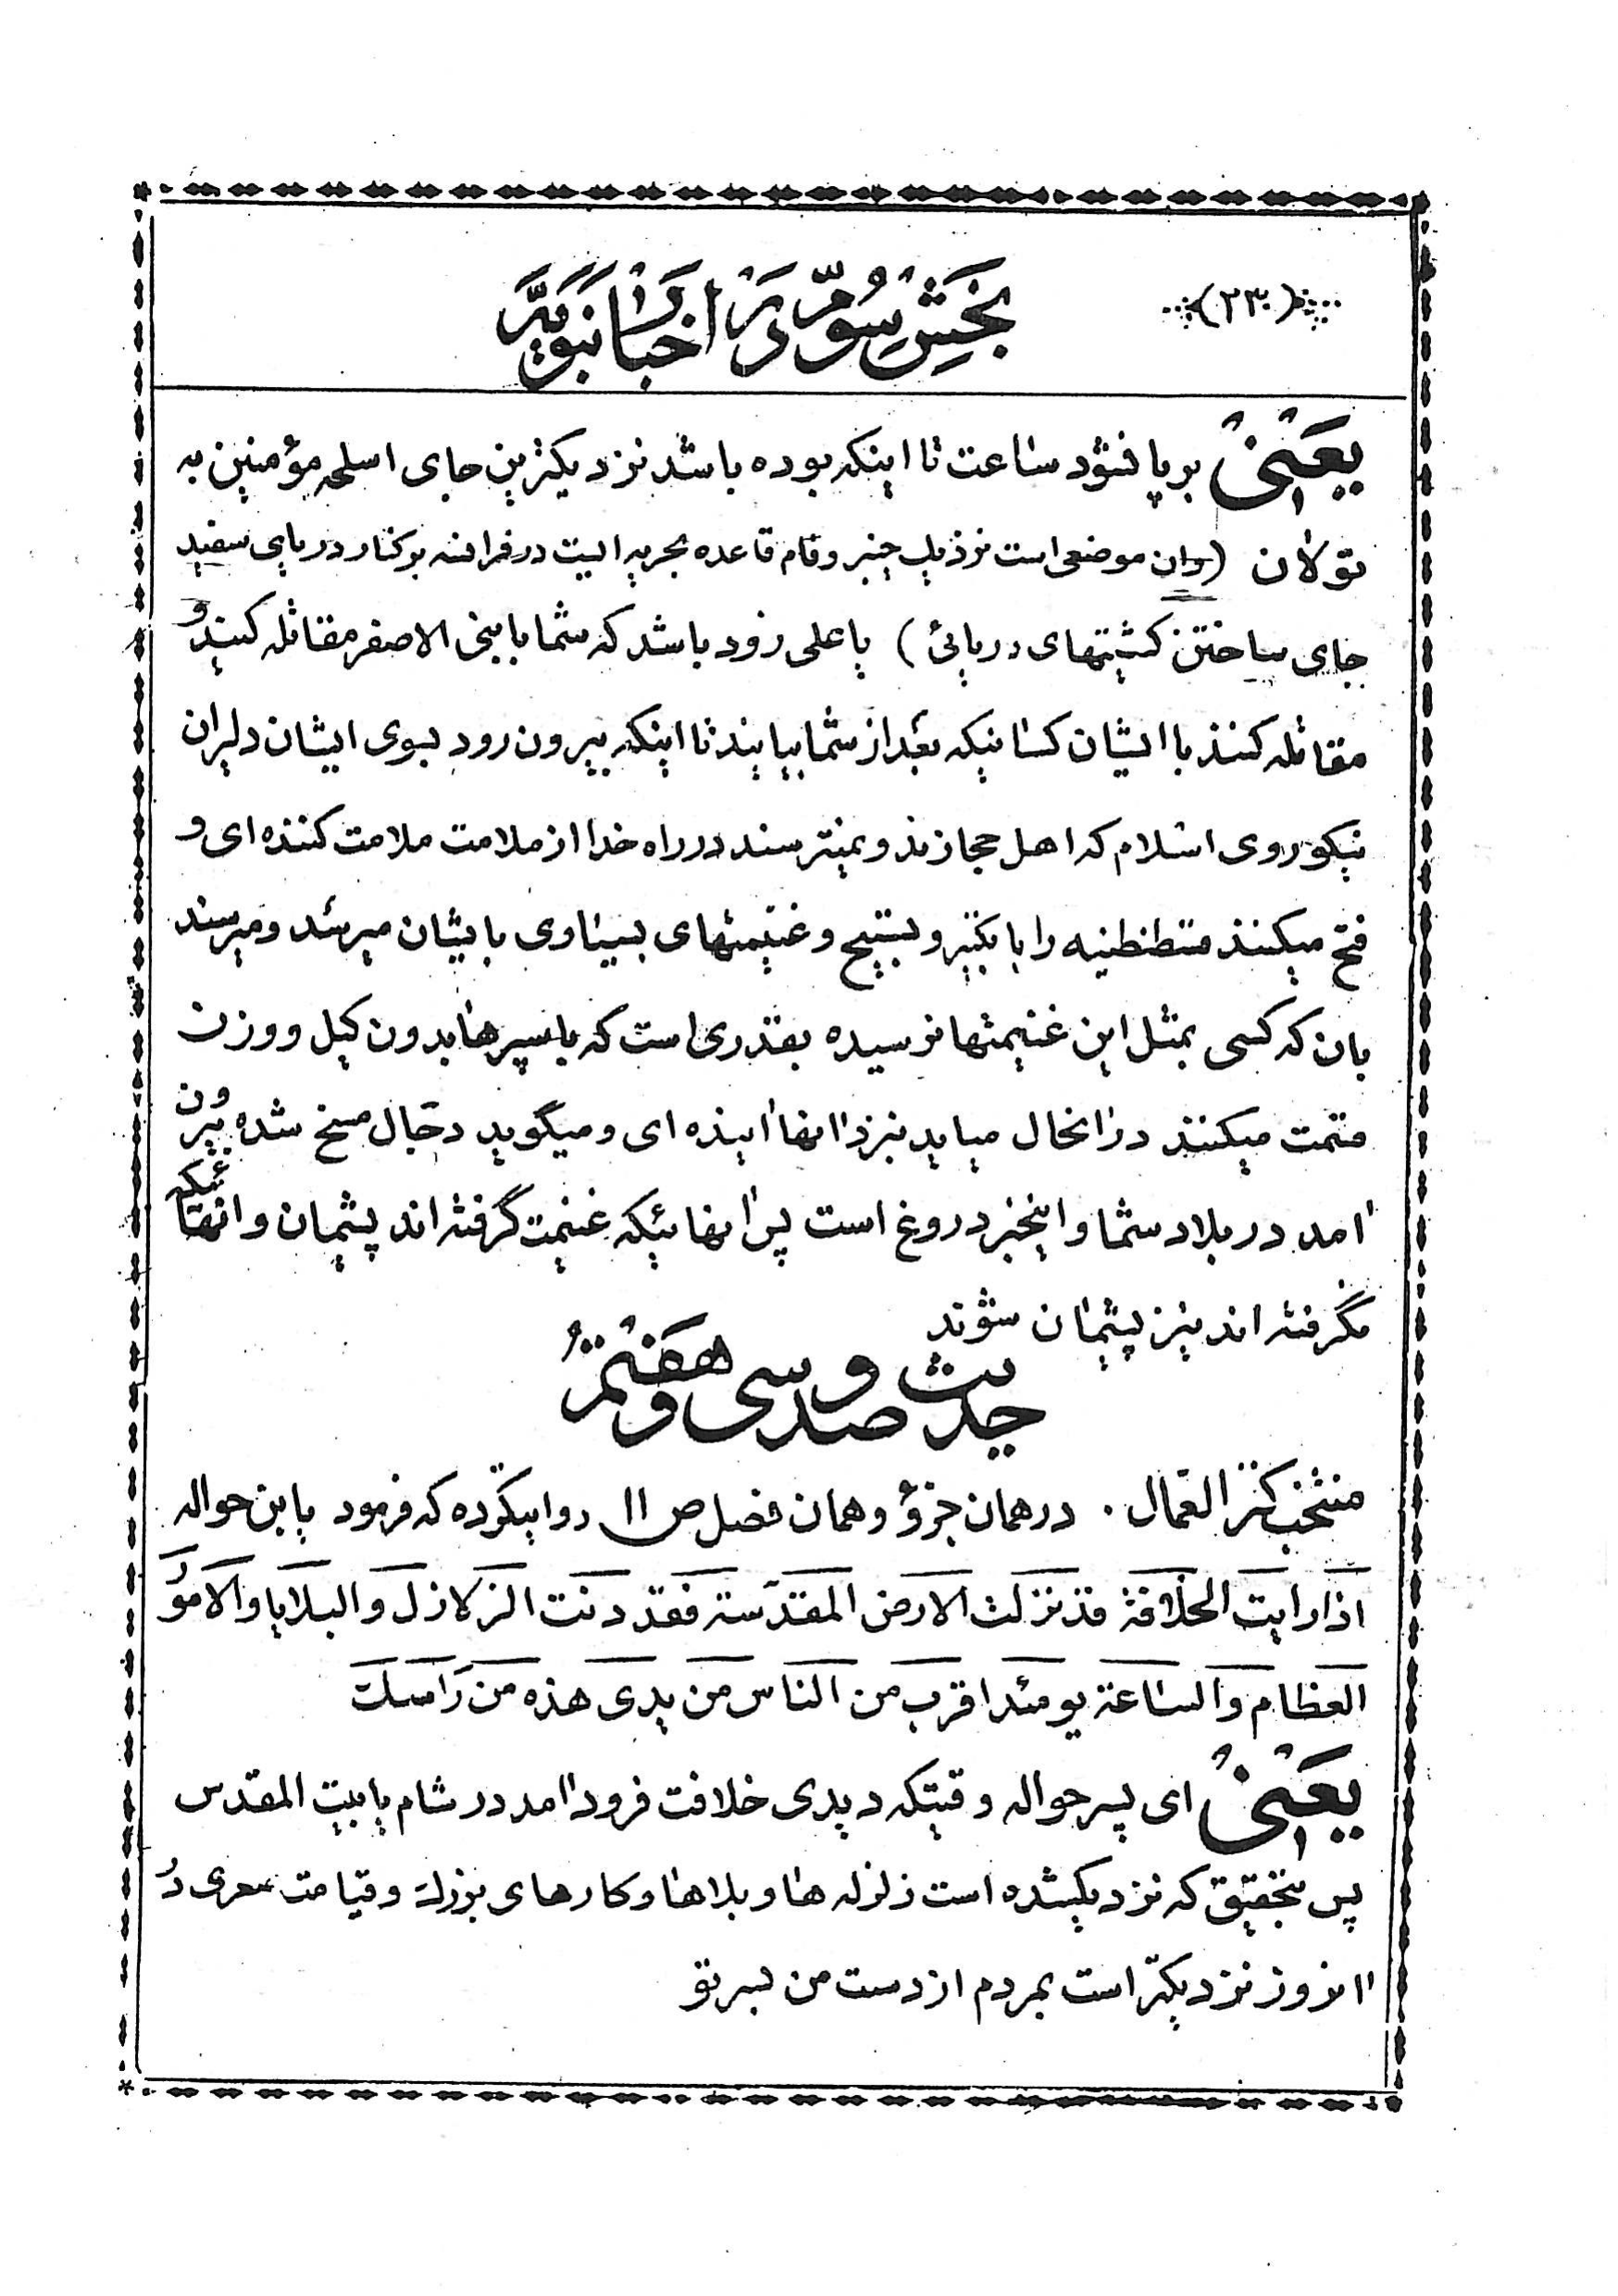 (۲۳۰)
بخش سوم در اخبار نبویه
یعنی بر پا نشود ساعت تا اینکه بوده باشد نزدیکترین جای اسلحه مؤمنین به
تولان (وان موضعی است نزدیک خیبر و نام قاعده بحریه ایست در فرانسه بر کنار دریای سفید
جای ساختن کشتیهای دریائی) یا علی زود باشد که شما با بنی الاصفر مقاتله کنید و
مقاتله کنند با ایشان کسانیکه بعد از شما بیایند تا اینکه بیرون رود بسوی ایشان دلیران
نیکو روی اسلام که اهل حجازند و نمیترسند در راه خدا از ملامت ملامت کننده ای و
فتح میکنند قسطنطنیه را با تکبیر و تسبیح و غنیمتهای بسیاری بایشان میرسد و میرسند
بان که کسی بمثل این غنیمتها نرسیده بقدری است که با سپرها بدون کیل و وزن
قسمت میکنند در انحال میاید نزد انها اینده ای و میگوید دجال مسخ شده بیرون
امد در بلاد شما و اینخبر دروغ است پس انهائیکه غنیمت گرفته اند پشیمان و انهائیکه
نگرفته اند نیز پشیمان شوند
حدیث صد و سی و هفتم
منتخب کنز العمال . در همان جزؤ و همان فصل ص ۱۱ روایتکرده که فرمود یا بن حواله
اذا رایت الخلافة قد نزلت الارض المقدسة فقد دنت الزلازل والبلایا والامور
العظام والساعة یومئذ اقرب من الناس من یدی هذه من راسک
یعنی ای پسر حواله وقتیکه دیدی خلافت فرود امد در شام یا بیت المقدس
پس بتحقیق که نزدیکشده است زلزله ها و بلاها و کارهای بزرک و قیامت صغری در
انروز نزدیکتر است بمردم از دست من بسر تو